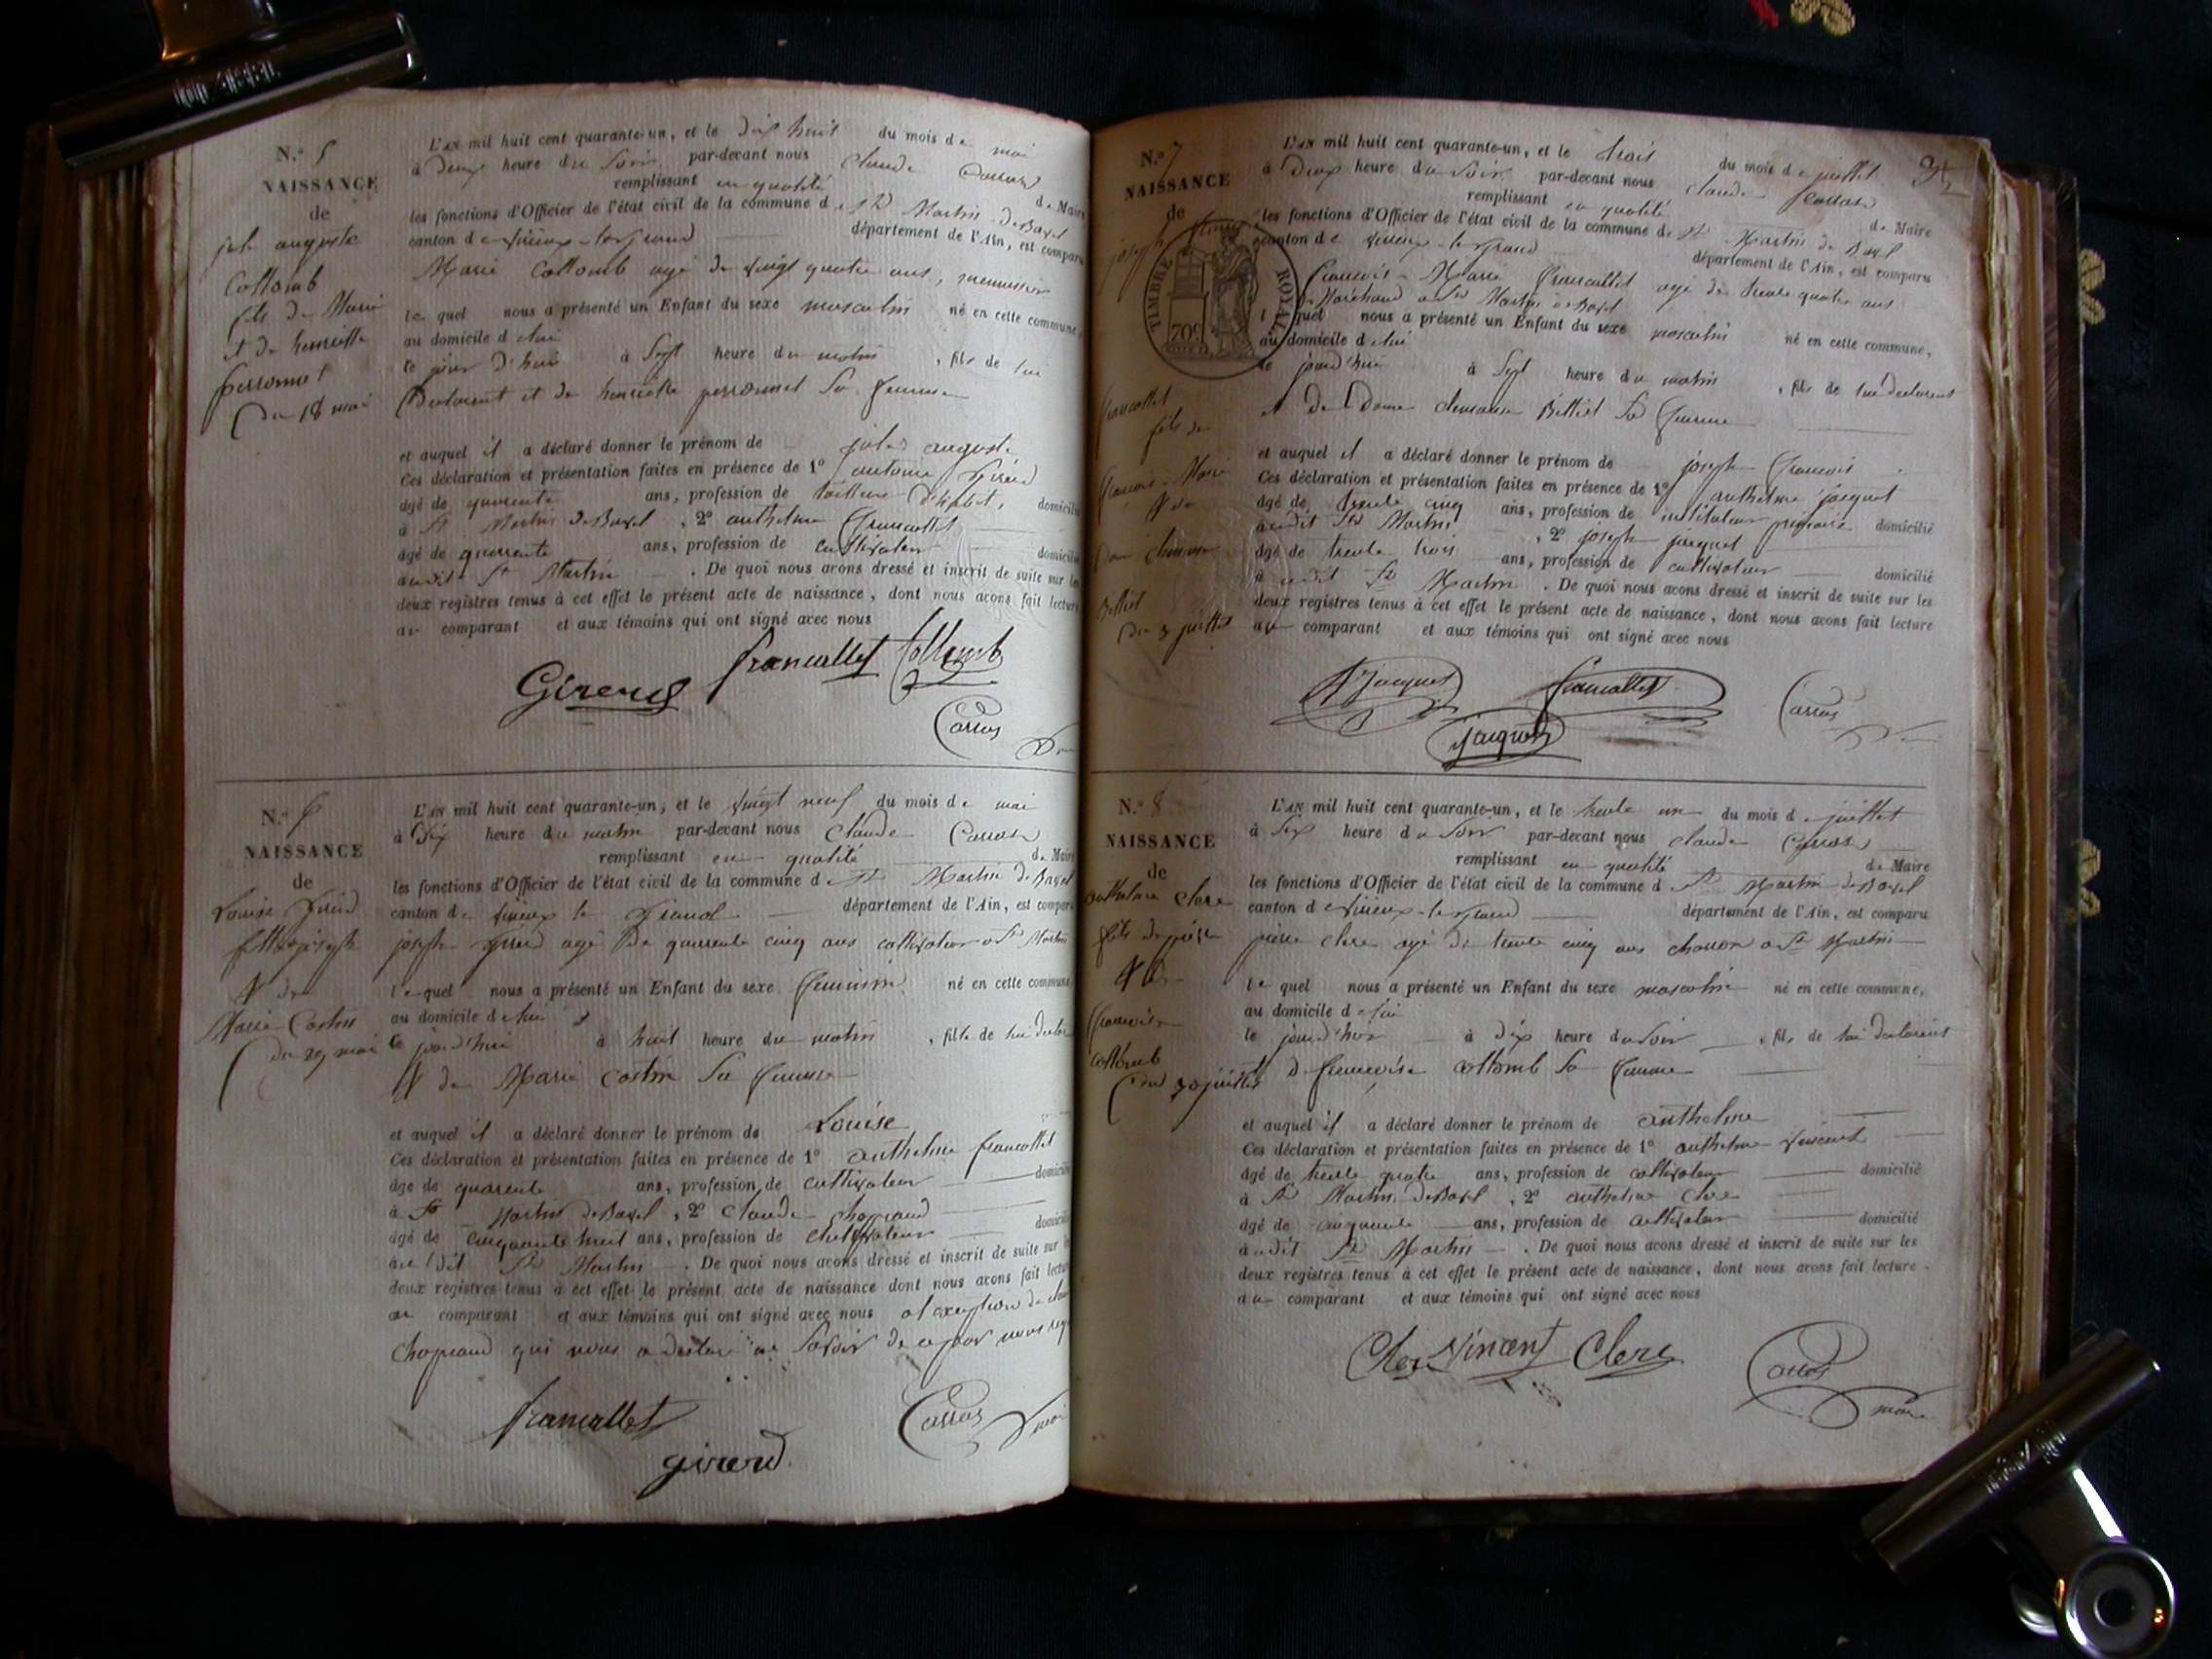 N.° 5
NAISSANCE
de
jule auguste
Collomb
fils de Marie
et de henriette
perronnet
du 18 mai
L'AN mil huit cent quarante-un, et le dix huit du mois de mai
à deux heure du soir par-devant nous claude Carras
remplissant en qualité de Maire
les fonctions d'Officier de l'état civil de la commune de St Martin de Bavel
canton de virieux-le-grand département de l'Ain, est comparu
Marie Collomb agé de vingt quatre ans, menuisier
le quel nous a présenté un Enfant du sexe masculin né en cette commune
au domicile de lui
ce jour d'hui à sept heure du matin, fils de lui
Declarent et de henriette perronnet sa femme
et auquel il a déclaré donner le prénom de jule auguste
Ces déclaration et présentation faites en présence de 1° antoine Girerd
âgé de quarente ans, profession de tailleur d'habit, domicilié
à St Martin de Bavel, 2° anthelme francallet
âgé de quarente ans, profession de cultivateur domicilié
audit St Martin. De quoi nous avons dressé et inscrit de suite sur les
deux registres tenus à cet effet le présent acte de naissance, dont nous avons fait lecture
au comparant et aux témoins qui ont signé avec nous
Girerd francallet Collomb
Carras
N.° 6
NAISSANCE
de
Louise Girerd
fille de joseph
& de
Marie Costin
du 29 mai
L'AN mil huit cent quarante-un, et le vingt neuf du mois de mai
à dix heure du matin par-devant nous claude Carras
remplissant en qualité de Maire
les fonctions d'Officier de l'état civil de la commune de St Martin de Bavel
canton de virieux le Grand département de l'Ain, est comparu
joseph Girerd agé de quarente cinq ans cultivateur a St Martin
le quel nous a présenté un Enfant du sexe feminin né en cette commune
au domicile de lui
ce jourd'hui à huit heure du matin, fille de lui
& de Marie Costin sa femme
et auquel il a déclaré donner le prénom de Louise
Ces déclaration et présentation faites en présence de 1° anthelme francallet
âgé de quarente ans, profession de cultivateur domicilié
à St Martin de Bavel, 2° Claude chapeaud
âgé de cinquante huit ans, profession de cultivateur domicilié
au dit St Martin. De quoi nous avons dressé et inscrit de suite sur les
deux registres tenus à cet effet le présent acte de naissance dont nous avons fait lecture
au comparant et aux témoins qui ont signé avec nous a l'exeption de
chapeaud qui nous a declaré ne savoir de
francallet
girerd
Carras maire
35
N.° 7
NAISSANCE
de
joseph
TIMBRE ROYAL
70c
francallet
fils de
françois-Marie
& de
Billiet
Du 3 juillet
L'AN mil huit cent quarante-un, et le trois du mois de juillet
à deux heure du soir par-devant nous claude Carras
remplissant en qualité de Maire
les fonctions d'Officier de l'état civil de la commune de St Martin de Bavel
canton de virieux-le-grand département de l'Ain, est comparu
françois-Marie francallet agé de trente quatre ans
Maréchaud a St Martin de Bavel
le quel nous a présenté un Enfant du sexe masculin né en cette commune,
au domicile de lui
ce jourd'hui à sept heure du matin, fils de lui declarent
et de Dame Billiet sa femme
et auquel il a déclaré donner le prénom de joseph françois
Ces déclaration et présentation faites en présence de 1° anthelme jacquet
âgé de trente cinq ans, profession de instituteur primaire domicilié
audit St Martin, 2° joseph jacquet
âgé de trente trois ans, profession de cultivateur domicilié
à udit St Martin. De quoi nous avons dressé et inscrit de suite sur les
deux registres tenus à cet effet le présent acte de naissance, dont nous avons fait lecture
au comparant et aux témoins qui ont signé avec nous
A Jacquet francallet
Jacquet
Carras
N.° 8
NAISSANCE
de
anthelme clerc
fils de pierre
& de
françoise
collomb
du 30 juillet
L'AN mil huit cent quarante-un, et le trente un du mois de juillet
à six heure du soir par-devant nous claude Carras
remplissant en qualité de Maire
les fonctions d'Officier de l'état civil de la commune de St Martin de Bavel
canton de virieux-le-grand département de l'Ain, est comparu
pierre clerc agé de trente cinq ans charron a St Martin
le quel nous a présenté un Enfant du sexe masculin né en cette commune,
au domicile de lui
le jour d'hier à dix heure du soir, fils de lui declarent
& françoise collomb sa femme
et auquel il a déclaré donner le prénom de anthelme
Ces déclaration et présentation faites en présence de 1° anthelme vincent
âgé de trente quatre ans, profession de cultivateur domicilié
à St Martin de Bavel, 2° anthelme clerc
âgé de cinquente ans, profession de cultivateur domicilié
audit St Martin. De quoi nous avons dressé et inscrit de suite sur les
deux registres tenus à cet effet le présent acte de naissance, dont nous avons fait lecture
au comparant et aux témoins qui ont signé avec nous
Clerc Vincent Clerc
Carras
maire